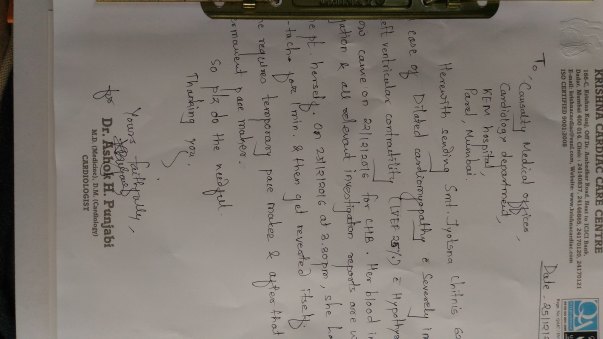 KRISHNA CARDIAC CARE CENTRE
ISO CERTIFIED 9001:2008
QA
Date: 25/12/2
To,
Causulty Medical officer,
Cardiology department,
KEM hospital,
Parel, Mumbai
Herewith sending Smt. Jyotsna Chitnis 62
case of Dilated cardiomyopathy c̄ severely im
eft ventricular contractility (LVEF 25%) c̄ Hypothyr
ow came on 22/12/2016 for CHB. Her blood in
gation & all relevant investigation reports are w
ept herself. On 25/12/2016 at 2.30pm, she ha
-tachy for 1min. & then get reverted itself.
he requires temporary pace maker & after that
ermanent pace maker.
So plz do the needful.
Thanking you,
Yours faithfully,
for
Dr. Ashok H. Punjabi
M.D. (Medicine), D.M. (Cardiology)
CARDIOLOGIST